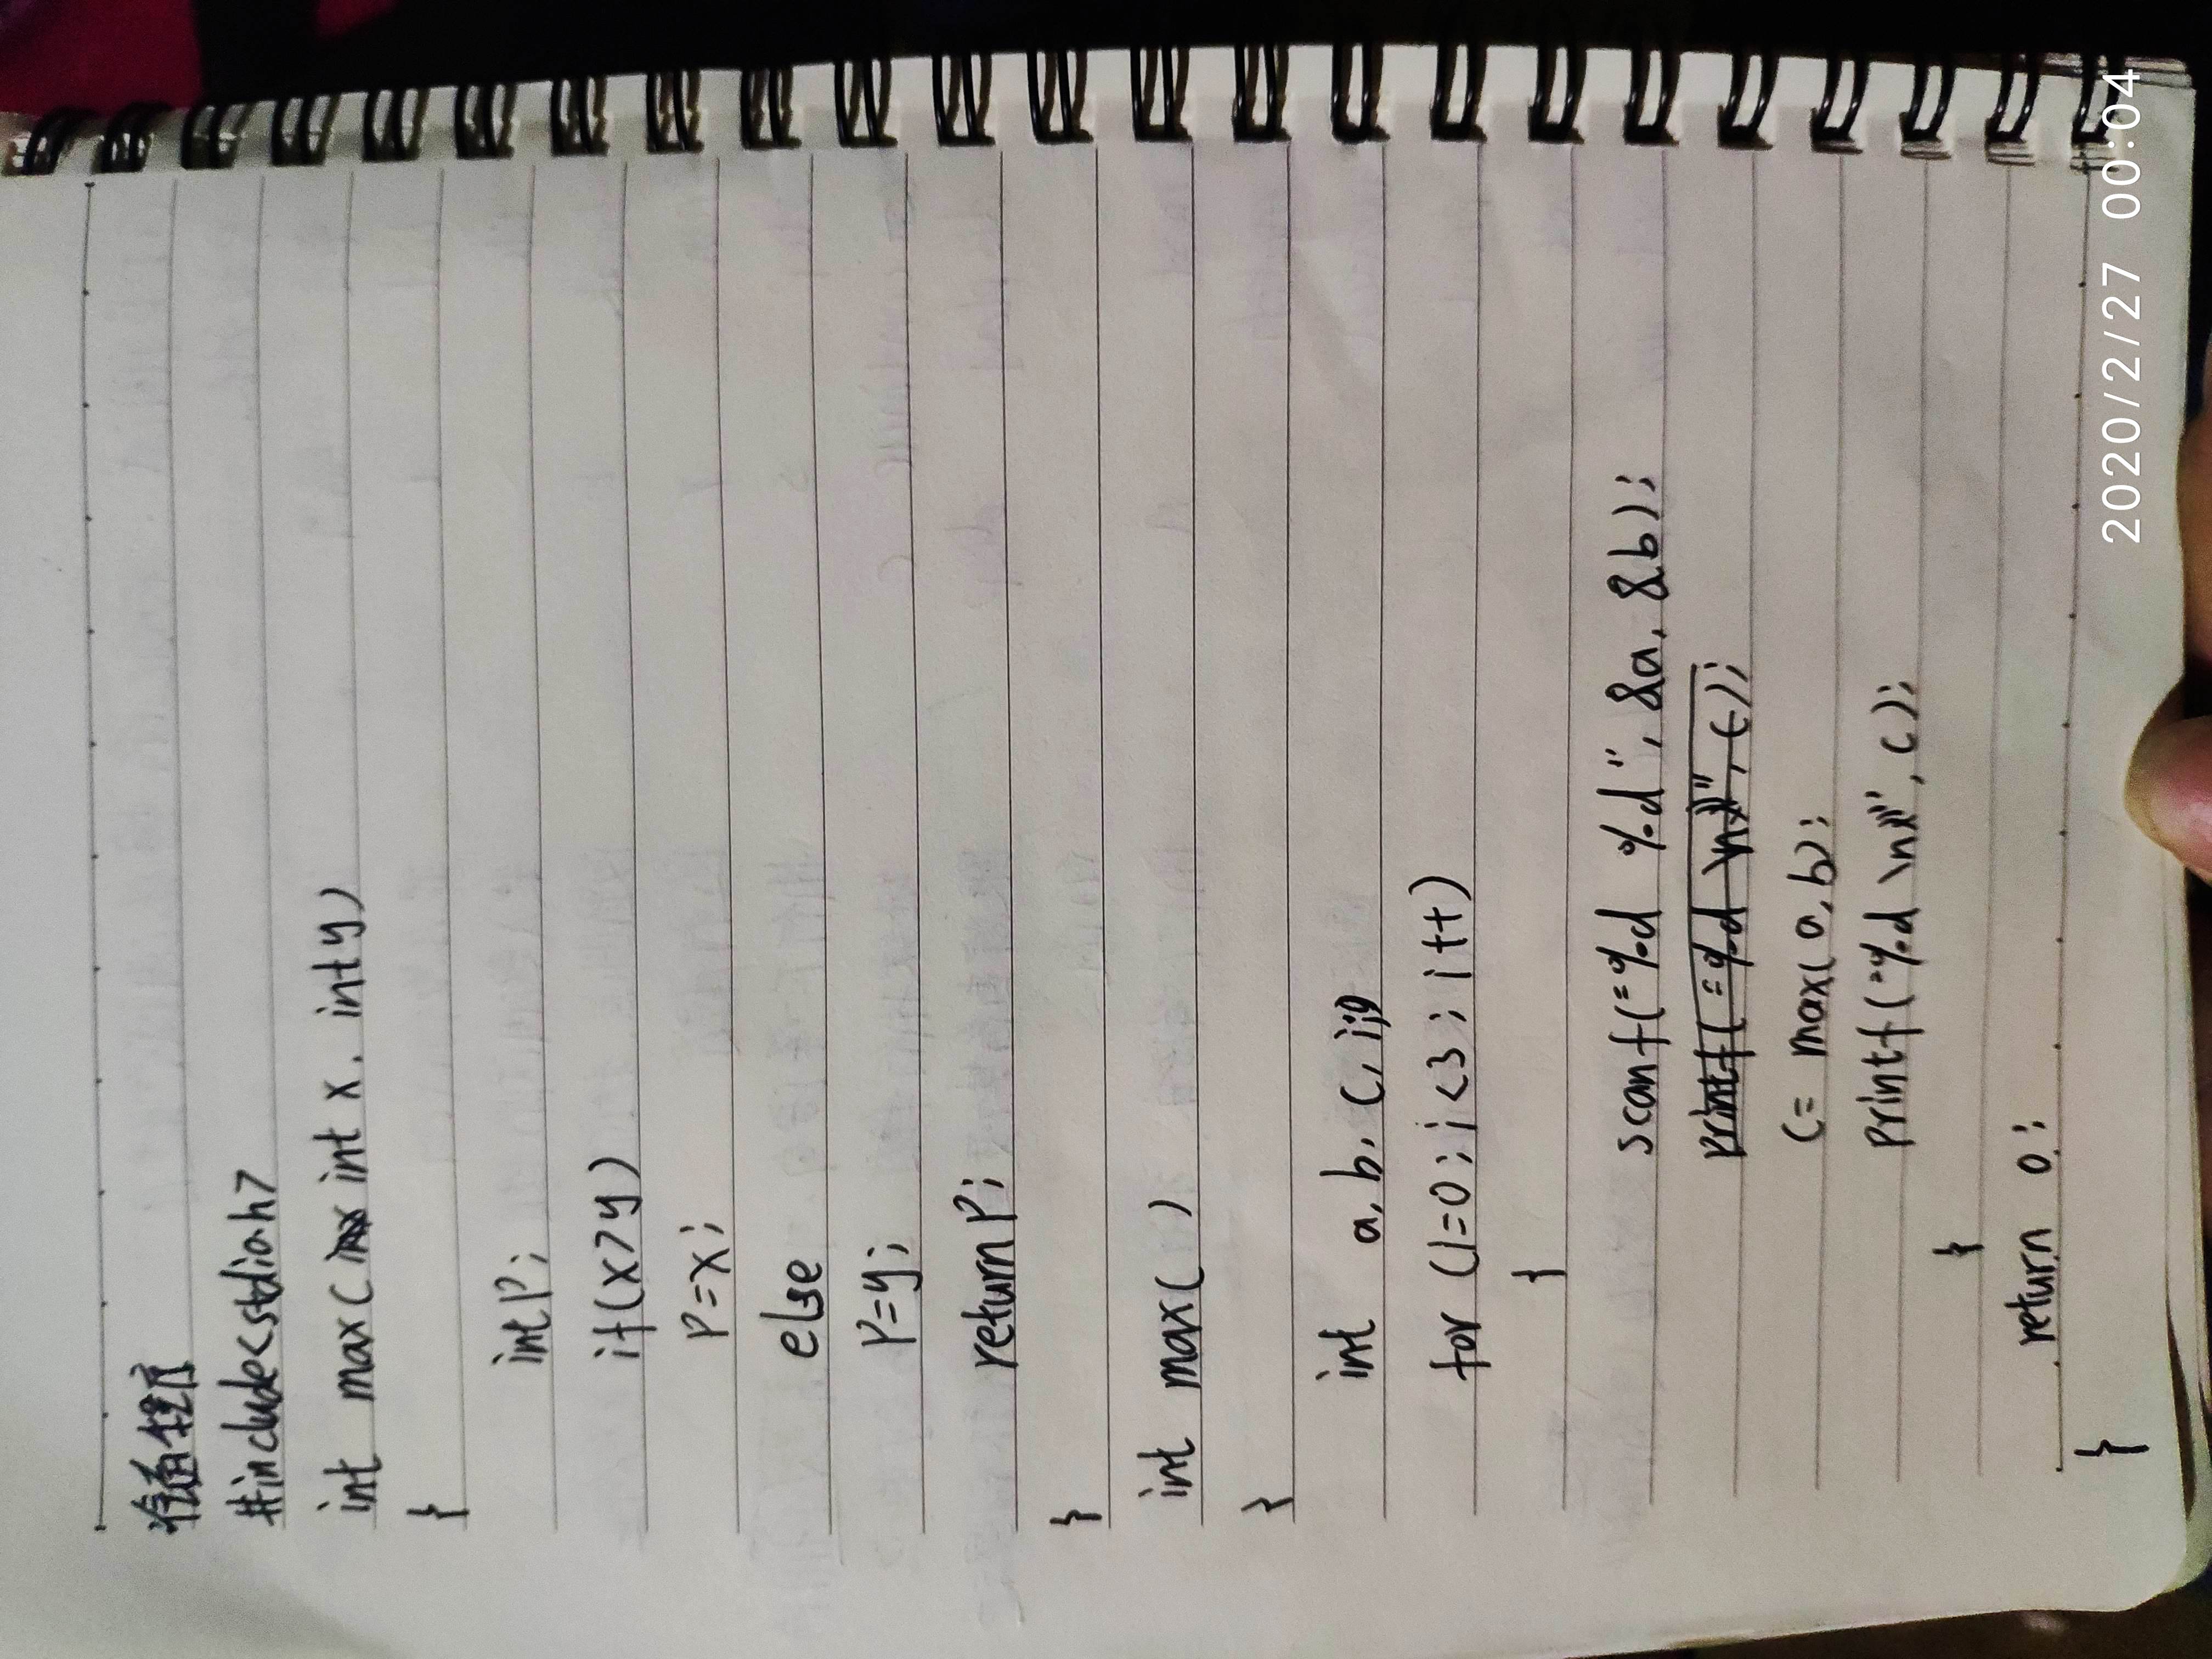 程序
#include<stdio.h>
int max( int x, int y)
{
int P;
if(x>y)
P=x;
else
P=y;
return P;
}
int max( )
{
int a, b, c, i;
for (i=0; i<3; i++)
{
scanf("%d %d", &a, &b);
printf("%d \n", c);
c= max(a, b);
printf("%d \n", c);
}
return 0;
}
2020/2/27 00:04